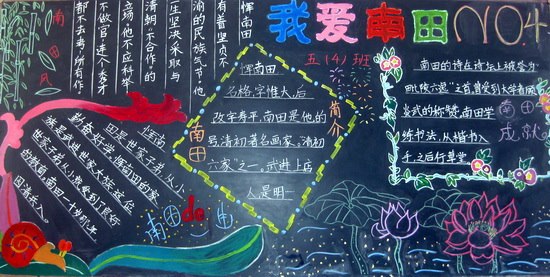 我爱南田 NO.4
五(4)班
南田
风
恽南田
有着坚贞不
渝的民族气节，他
一生坚决采取与
清朝“不合作”的
立场他不应科举
不做官，连个秀才
都不去考，所有作
恽南田
名格，字惟大，后
改字寿平，南田是他的
号，清初著名画家，“清初
六家”之一。武进上店
人，是明
简介
南田
恽南
田是世家子弟，从小
勤奋好学，恽南田的家
族是武进世家大族，这位
世家子弟从小就受到了良好
的教育，南田一十岁那年
南田de一生
南田的诗在诗坛上被誉为
“毗陵六逸”之首，曾受到大学者顾
炎武的称赞，南田学
练书法，从楷书入
手，之后行草学
南田成就